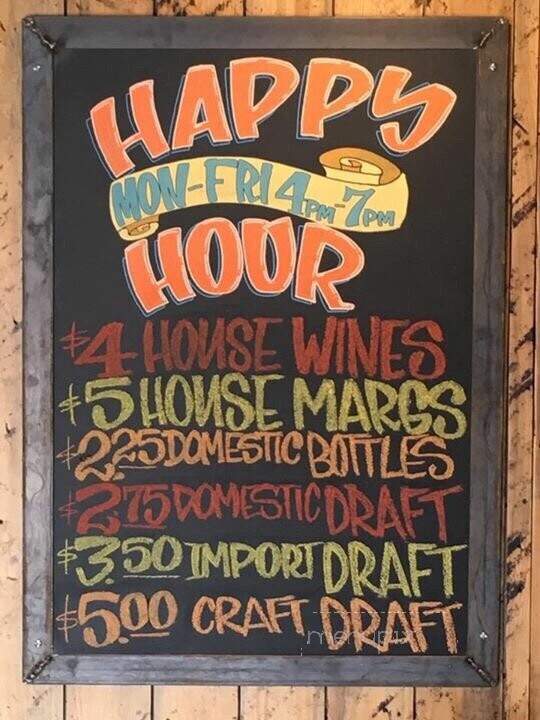 HAPPY
MON-FRI 4PM-7PM
HOUR
$4 HOUSE WINES
$5 HOUSE MARGS
$2.25 DOMESTIC BOTTLES
$2.75 DOMESTIC DRAFT
$3.50 IMPORT DRAFT
$5.00 CRAFT DRAFT
menupix